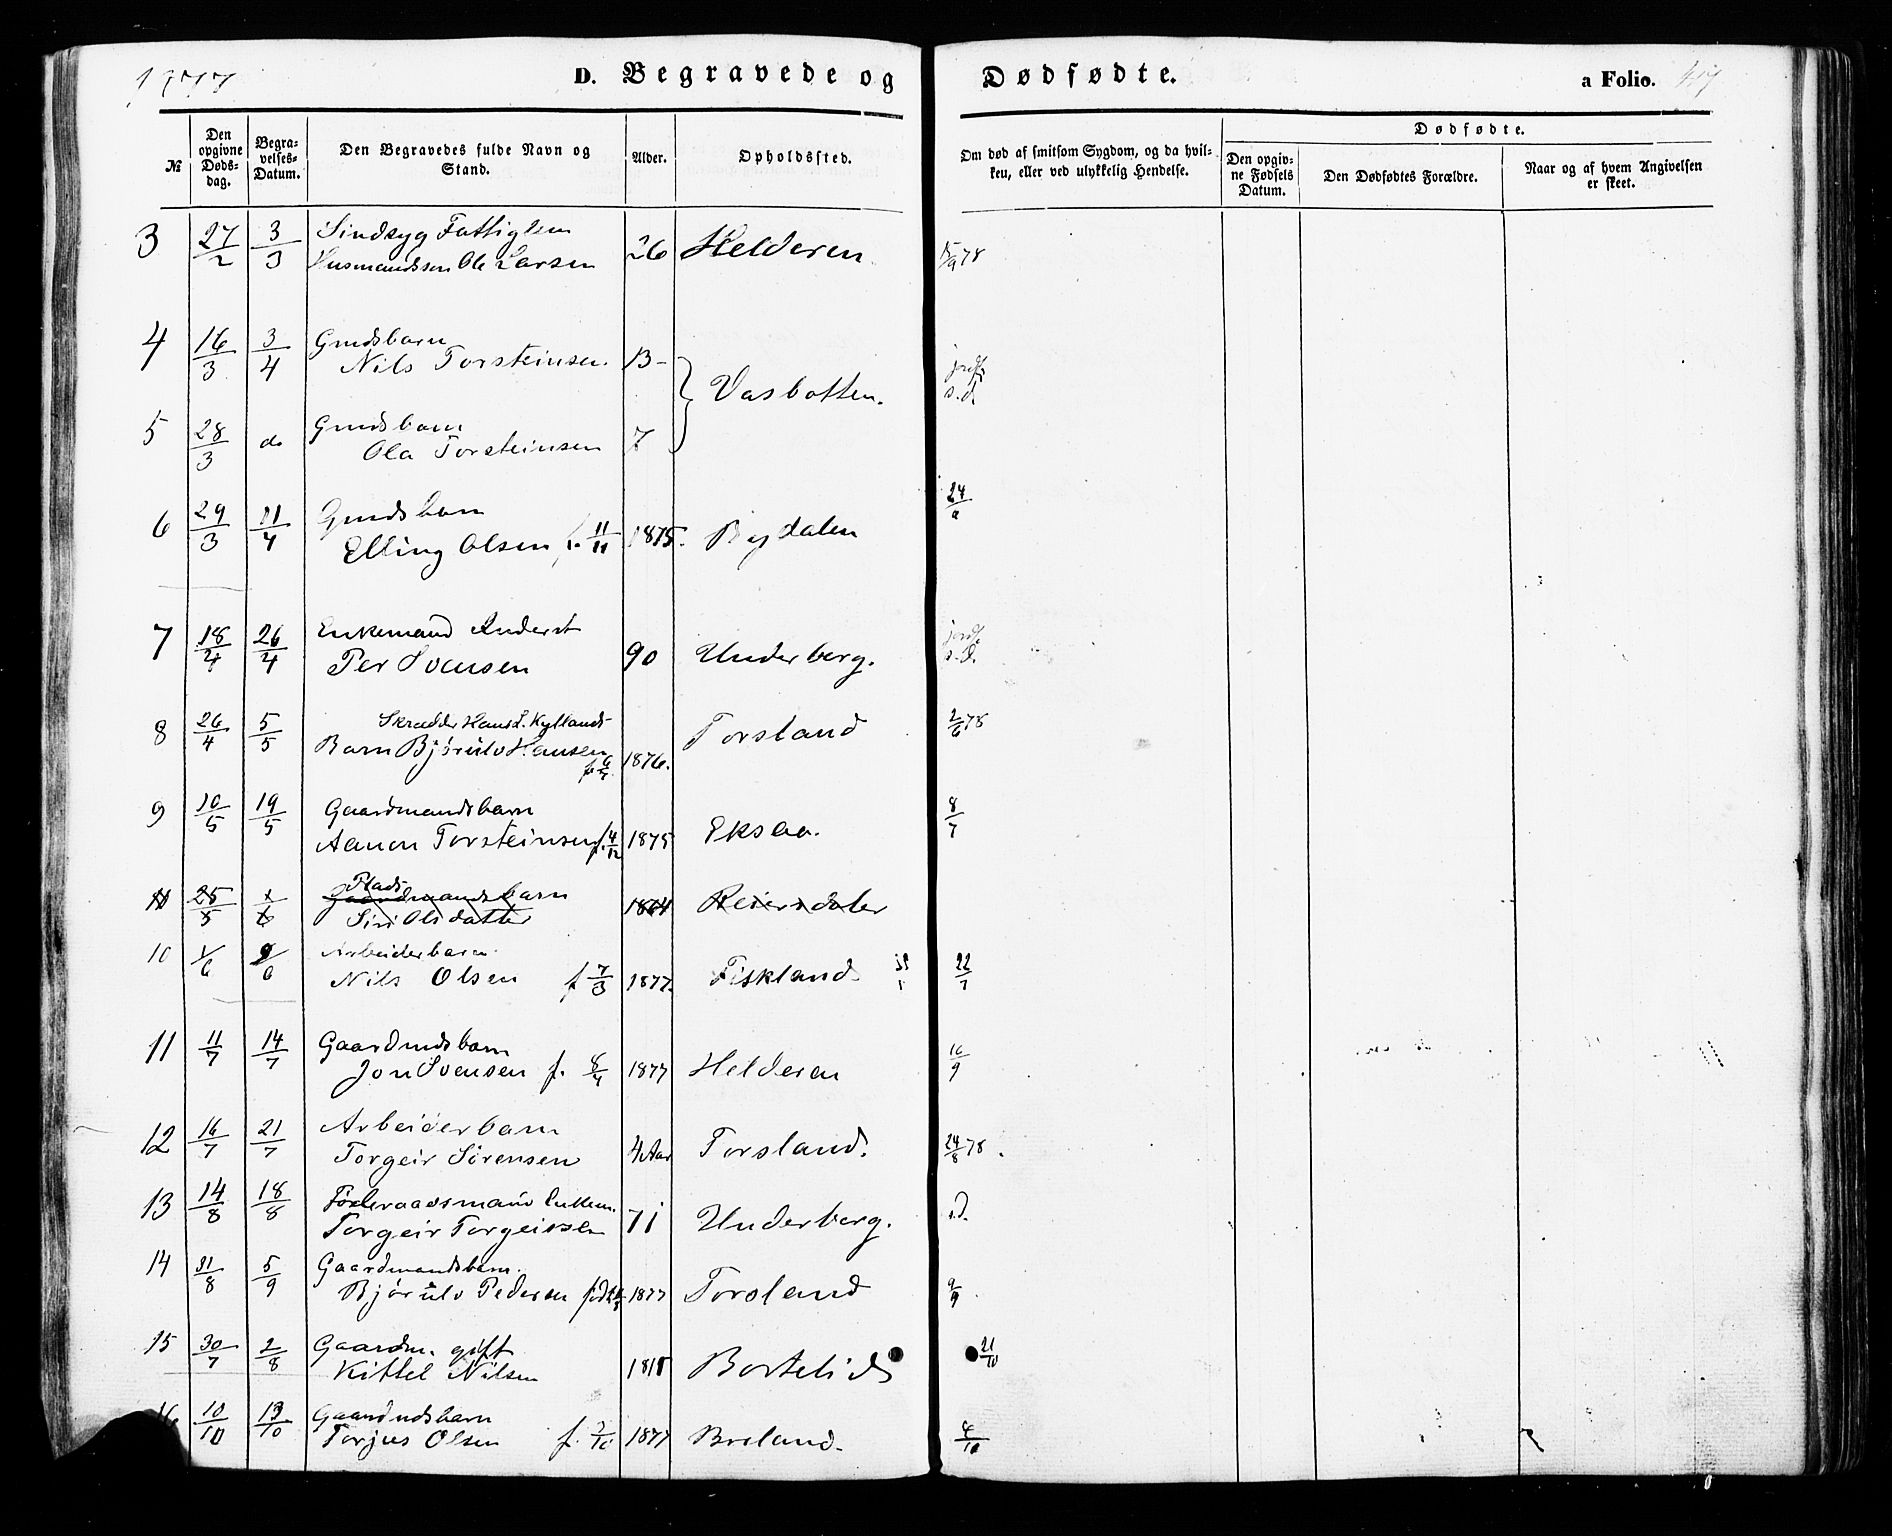 1877
D. Begravede og Dødfødte.
a Folio. 417
№
Den opgivne Døds-dag.
Begra-velses-Datum.
Den Begravedes fulde Navn og Stand.
Alder.
Opholdssted.
Om død af smitsom Sygdom, og da hvil-ken, eller ved ulykkelig Hendelse.
Dødfødte.
Den opgiv-ne Fødsels Datum.
Den Dødfødtes Forældre.
Naar og af hvem Angivelsen er skeet.
3 27/2 3/3 Sindsyg Fattiglem
Husmandssøn Ole Larsen 26 Helderen 15/9 78
4 16/3 3/4 Gmdsbarn
Nils Torsteinsen. 13 -
Vasbotten. jordf. s.d.
5 28/3 do Gmdsbarn
Ola Torsteinsen 7
6 29/3 11/4 Gmdsbarn
Elling Olsen f. 11/11 1875. Bygdalen 24/9
7 18/4 26/4 Enkemand
Per Svensen 90 Underberg. jordf. s.d.
8 26/4 5/5 Skrædder Hans L. Kyllands-
Barn Bjørulv Hansen 1876. Torsland 2/6 78
9 10/5 19/5 Gaardmandsbarn
Aanon Torsteinsen f. 4/12 1875 Eksaa. 8/7
25/5 Plads
Gaardmandsbarn
Siri Olsdatter 1864 Reiersdaler
10 1/6 9/6 Arbeiderbarn
Nils Olsen f 7/3 1877. Fiskland 22/7
11 11/7 14/7 Gaardmdsbarn
Jon Svensen f. 8/4 1877 Helderen 16/9
12 16/7 21/7 Arbeiderbarn
Torgeir Sørensen 4 Aar Torsland. 24/8 78.
13 14/8 18/8 Føderaadsmand Enkem.
Torgeir Torgeirsen 71 Underberg. s.d.
14 31/8 5/9 Gaardmandsbarn.
Bjørulv Pedersen 1877 Torsland 9/9
15 30/7 2/8 Gaardm. gift
Kittel Nilsen 1818 Bortelid 21/10
16 10/10 13/10 Gaardmdsbarn
Torjus Olsen f. 2/10 1877 Breland.